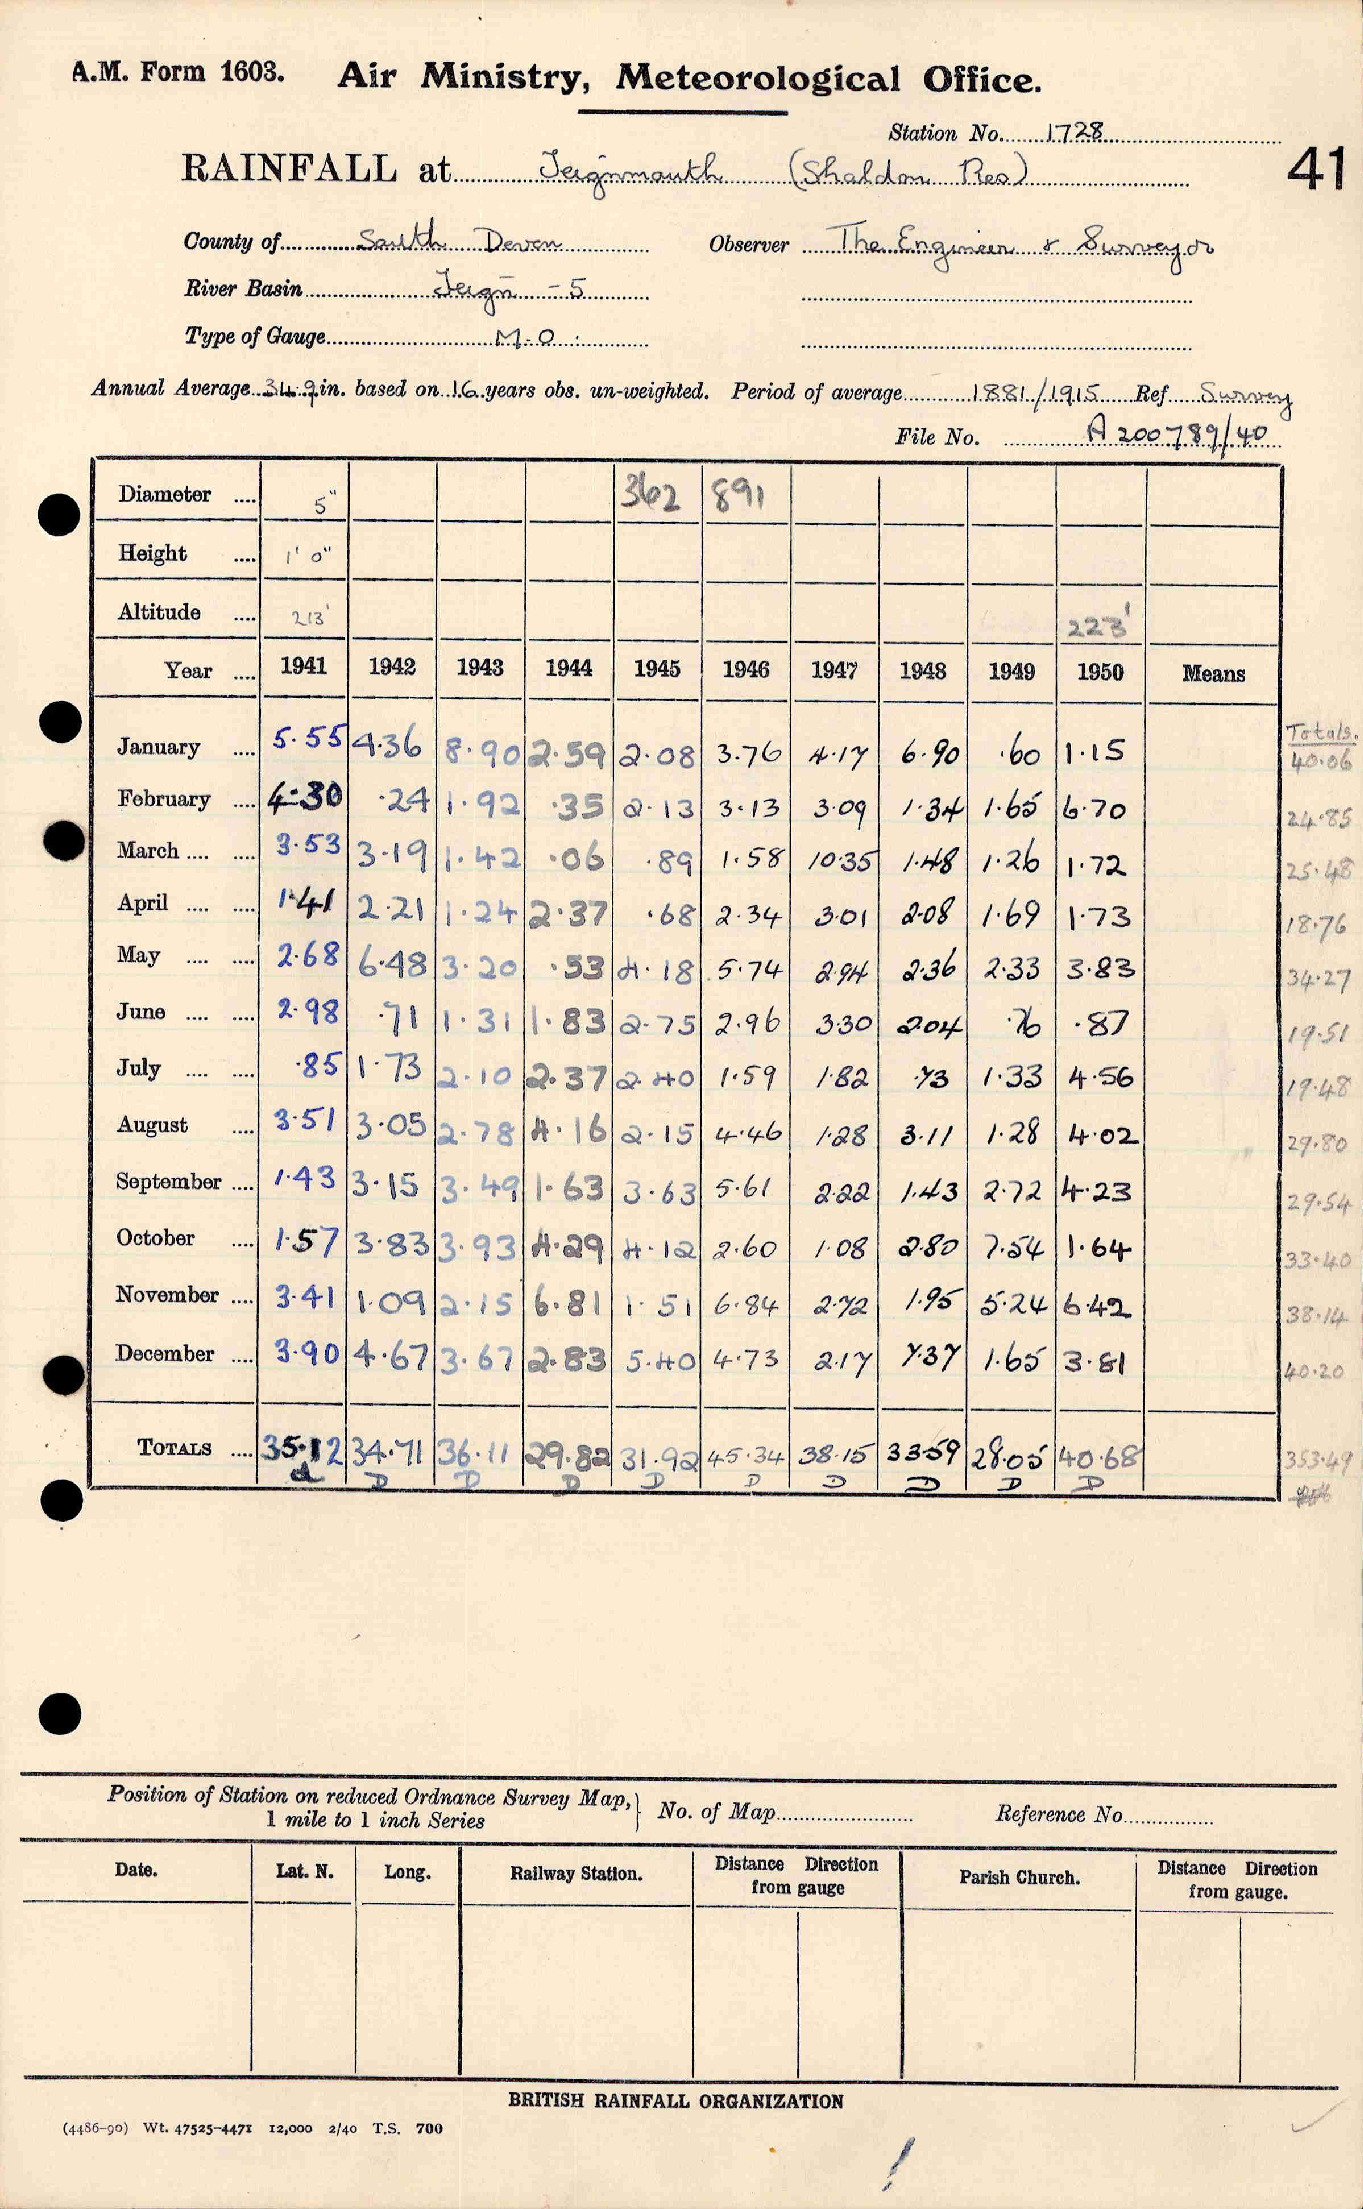 A.M. Form 1603. Air Ministry, Meteorological Office.
Station No. 1728
RAINFALL at Teignmouth (Shaldon Res) 41
County of South Devon Observer The Engineer & Surveyor
River Basin Teign - 5
Type of Gauge M.O.
Annual Average 34.9 in. based on 16 years obs. un-weighted. Period of average 1881/1915 Ref Survey
File No. A200789/40
Diameter .... 5" 362 891
Height .... 1' 0"
Altitude .... 213' 223'
Year .... 1941 1942 1943 1944 1945 1946 1947 1948 1949 1950 Means
Totals.
January .... 5.55 4.36 8.90 2.59 2.08 3.76 4.17 6.90 .60 1.15 40.06
February .... 4.30 .24 1.92 .35 2.13 3.13 3.09 1.34 1.65 6.70 24.85
March .... .... 3.53 3.19 1.42 .06 .89 1.58 10.35 1.48 1.26 1.72 25.48
April .... .... 1.41 2.21 1.24 2.37 .68 2.34 3.01 2.08 1.69 1.73 18.76
May .... .... 2.68 6.48 3.20 .53 4.18 5.74 2.94 2.36 2.33 3.83 34.27
June .... .... 2.98 .71 1.31 1.83 2.75 2.96 3.30 2.04 .76 .87 19.51
July .... .... .85 1.73 2.10 2.37 2.40 1.59 1.82 .73 1.33 4.56 19.48
August .... 3.51 3.05 2.78 4.16 2.15 4.46 1.28 3.11 1.28 4.02 29.80
September .... 1.43 3.15 3.49 1.63 3.63 5.61 2.22 1.43 2.72 4.23 29.54
October .... 1.57 3.83 3.93 4.29 4.12 2.60 1.08 2.80 7.54 1.64 33.40
November .... 3.41 1.09 2.15 6.81 1.51 6.84 2.72 1.95 5.24 6.42 38.14
December .... 3.90 4.67 3.67 2.83 5.40 4.73 2.17 7.37 1.65 3.81 40.20
TOTALS .... 35.12 34.71 36.11 29.82 31.92 45.34 38.15 33.59 28.05 40.68 353.49
d D D D D D D D D D
Position of Station on reduced Ordnance Survey Map, } No. of Map Reference No.
1 mile to 1 inch Series
Date. Lat. N. Long. Railway Station. Distance Direction from gauge Parish Church. Distance Direction from gauge.
BRITISH RAINFALL ORGANIZATION
(4486-90) Wt. 47525-4471 12,000 2/40 T.S. 700